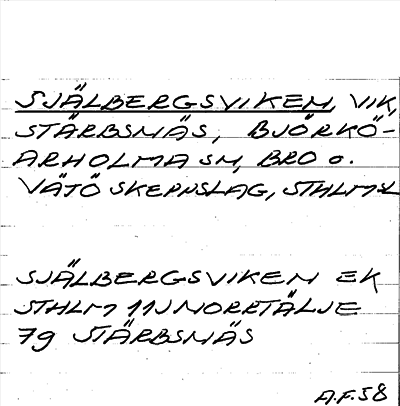 SJÄLBERGSVIKEN, VIK,
STÄRBSNÄS, BJÖRKÖ-
ARHOLMA SN, BRO o.
VÄTÖ SKEPPSLAG, STHLMS L
SJÄLBERGSVIKEN EK
STHLM 11J NORRTÄLJE
79 STÄRBSNÄS
A.F.58